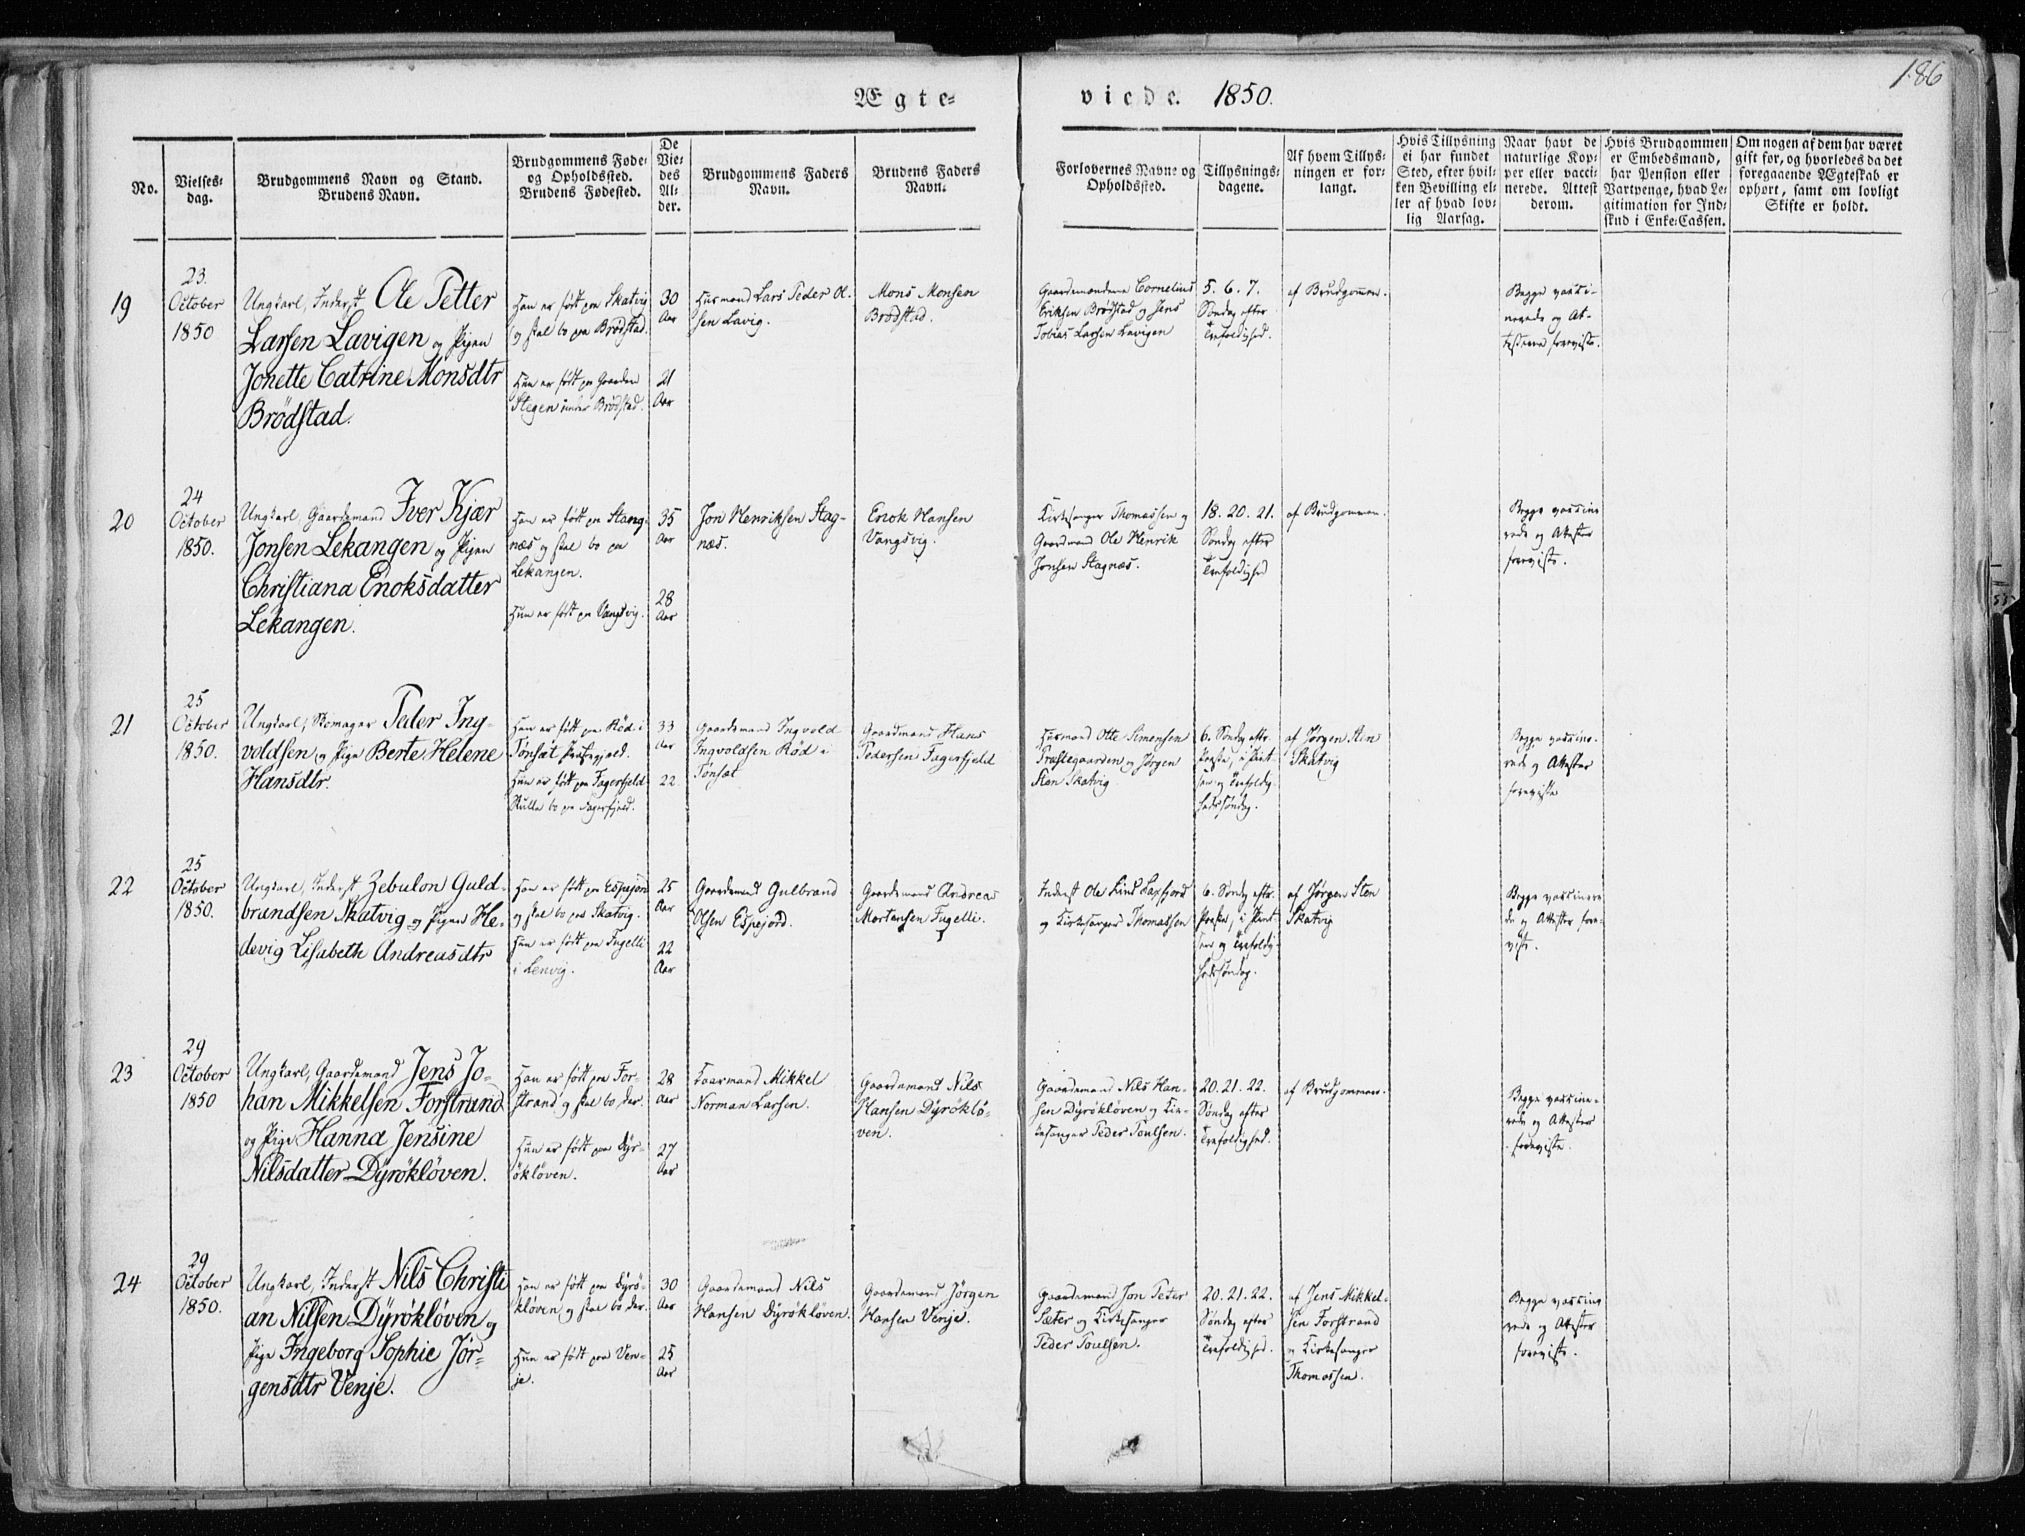 186
Ægte-
viede. 1850.
No.
Vielses-
dag.
Brudgommens Navn og Stand.
Brudens Navn.
Brudgommens Føde-
og Opholdssted.
Brudens Fødested.
De
Vie-
des
Al-
der.
Brudgommens Faders
Navn.
Brudens Faders
Navn.
Forlovernes Navne og
Opholdssted.
Tillysnings-
dagene.
Af hvem Tillys-
ningen er for-
langt.
Hvis Tillysning
ei har fundet
Sted, efter hvil-
ken Bevilling el-
ler af hvad lov-
lig Aarsag.
Naar havt de
naturlige Kop-
per eller vacci-
nerede. Attest
derom.
Hvis Brudgommen
er Embedsmand,
har Pension eller
Vartpenge, hvad Le-
gitimation for Ind-
skud i Enke-Cassen.
Om nogen af dem har været
gift for, og hvorledes da det
foregaaende Ægteskab er
ophørt, samt om lovligt
Skifte er holdt.
19
23
October
1850
Ungkarl, Inderst Ole Petter
Larsen Lavigen og Pigen
Jonette Catrine Monsdtr
Brödstad.
Han er født paa Skatvig
og skal bo paa Brödstad.
Hun er født paa Gaarden
Stegen under Brödstad.
30
Aar
21
Aar
Husmand Lars Peder Ol-
sen Lavig.
Mons Monsen
Brödstad.
Gaardmændene Cornelius
Eriksen Brödstad og Jens
Tobias Larsen Lavigen
5. 6. 7.
Søndag efter
Trefoldighed.
af Brudgommen.
Begge vacci-
nerede og At-
testerne foreviste.
20
24
October
1850.
Ungkarl, Gaardmand Iver Kjær
Jonsen Lekangen og Pigen
Christiana Enoksdatter
Lekangen.
Han er født paa Stang-
næs og skal bo paa
Lekangen.
Hun er født paa Vangsvig.
35
Aar
28
Aar
Jon Henriksen Stag-
næs.
Enok Hansen
Vangsvig.
Kirkesanger Thomassen og
Gaardmand Ole Henrik
Jonsen Stagnæs.
18. 20. 21.
Søndag efter
Trefoldighed
af Brudgommen.
Begge vaccine
rede og Attester
foreviste.
21
25
October
1850.
Ungkarl, Skomager Peder Ing-
voldsen og Pige Berte Helene
Hansdtr.
Han er født paa Röd i
Tönsæt Præstegjeld.
Hun er født paa Fagerfjeld
Skulle bo paa Fagerfjeld.
33
Aar
22
Gaardmand Ingvold
Ingvoldsen Röd i
Tönsæt
Gaardmand Hans
Pedersen Fagerfjeld
Husmand Otte Simonsen
Præstegaarden og Jörgen
Sten Skatvig
6. Søndag eftr.
Paaske, i Pint-
sen og Trefoldig-
hedssøndag.
af Jörgen Sten
Skatvig
Begge vaccine-
rede og Attester
foreviste
22
25
October
1850.
Ungkarl, Inderst Zebulon Guld-
brandsen Skatvig og Pigen He-
devig Lisabeth Andreasdtr
Han er født paa Espejord
og skal bo paa Skatvig.
Hun er født paa Fugelli
i Lenvig.
25
Aar
22
Aar
Gaardmand Gulbrand
Olsen Espejord.
Gaardmand Andreas
Mortensen Fugelli.
Inderst Ole Lind Laxfjord
og Kirkesanger Thomassen
6. Søndag eftr.
Paaske, i Pint-
sen og Trefoldig-
hedssøndag.
af Jörgen Sten
Skatvig
Begge vaccinere
de og Attester fore-
viste.
23
29
October
1850
Ungkarl, Gaardmand Jens Jo-
han Mikkelsen Forstrand
og Pige Hanna Jensine
Nilsdatter Dÿrökløven.
Han er født paa For-
strand og skal bo der.
Hun er født paa Dÿr-
ökløven.
28
Aar
27
Aar
Mikkel
Norman Larsen.
Gaardmand Nils
Hansen Dÿröklö-
ven.
Gaardmand Nils Han-
sen Dÿrökløven og Kir-
kesanger Peder Poulsen.
20. 21. 22.
Søndag efter
Trefoldighed.
af Brudgommen.
Begge vaccine-
rede og Attester
foreviste.
24
29
October
1850.
Ungkarl, Inderst Nils Christi
an Nilsen Dÿrökløven og
Pige Ingeborg Sophie Jör-
gensdtr Venje.
Han er født paa Dÿrö-
kløven og skal bo der.
Hun er født paa Ven-
je.
30
Aar
25
Aar
Gaardmand Nils
Hansen Dÿrökløven.
Gaardmand Jörgen
Hansen Venje.
Gaardmand Jon Peter
Sæter og Kirkesanger
Peder Poulsen.
20. 21. 22.
Søndag efter
Trefoldighed.
af Jens Mikkel-
sen Forstrand
og Kirkesanger
Thomassen.
Begge vaccine
rede og Attester
foreviste.